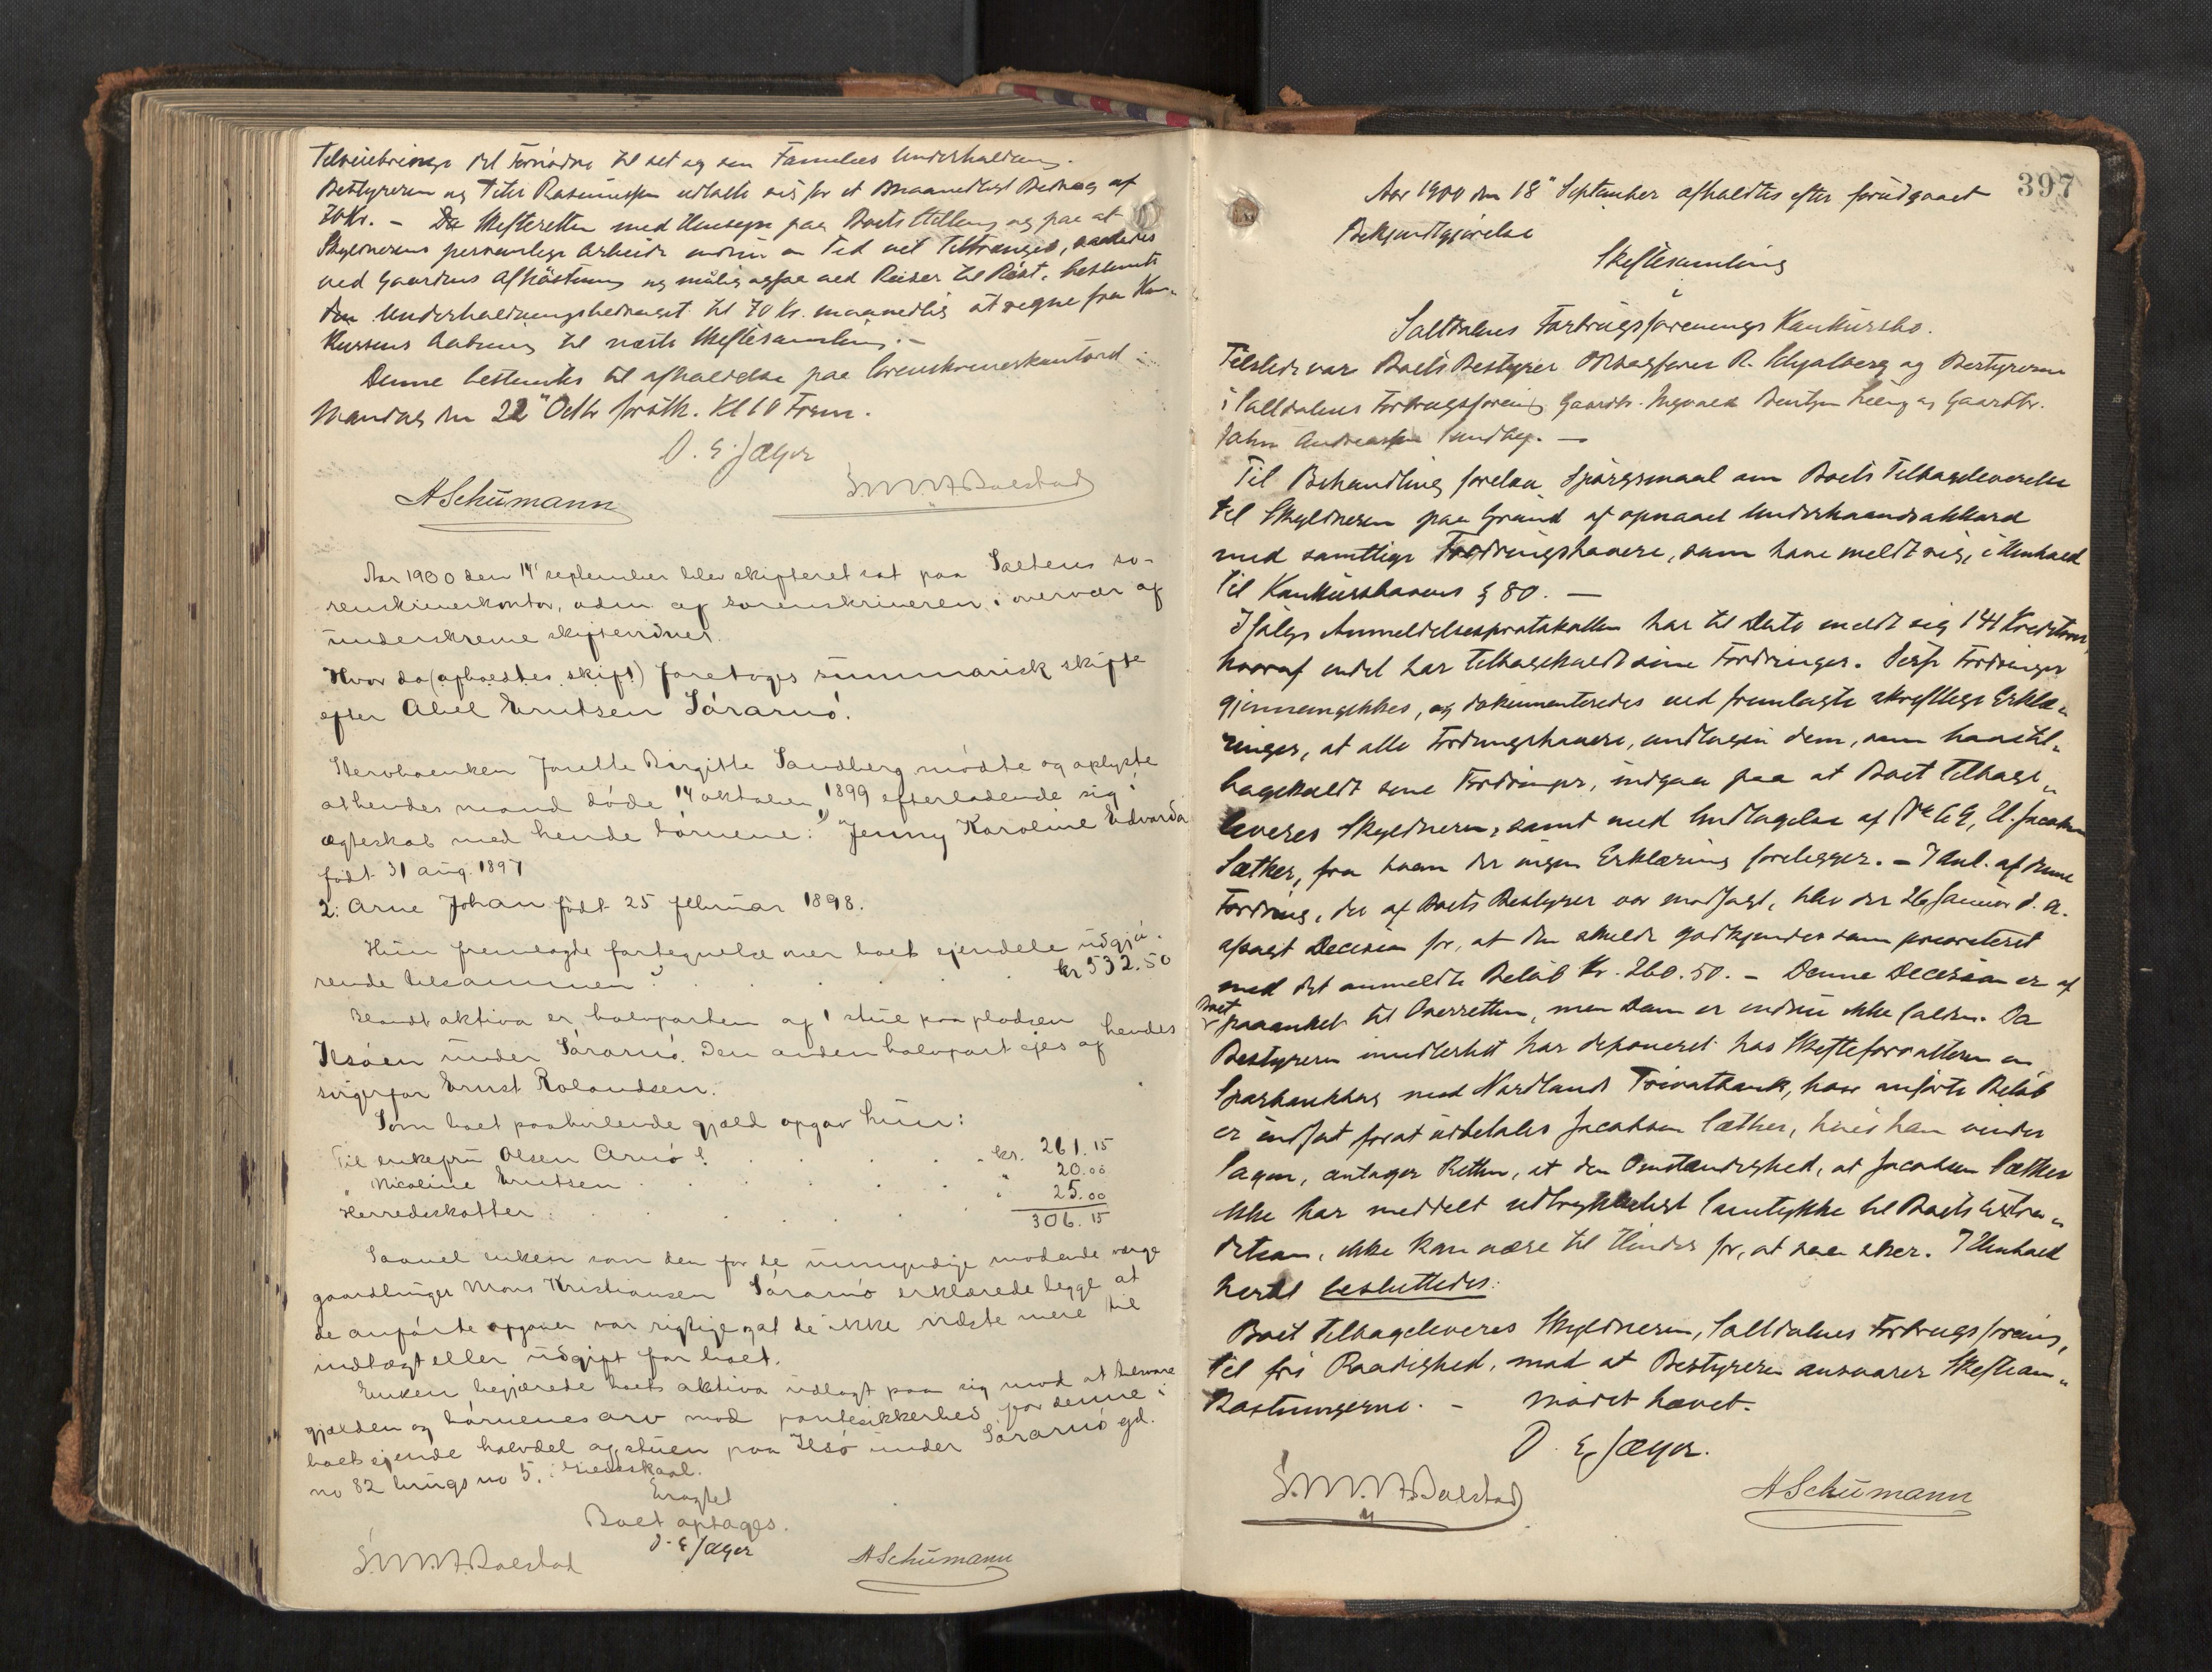 Tilveiebringe det Fornödne til sit og sin Families Underholdning.
Bestyreren og Peter Rasmussen udtalte sig for et maanedligt Bidrag af
70 Kr. – Skifteretten med Hensyn paa Boets Stilling og paa at
Skyldnerens personlige Arbeide endnu en Tid vil tiltrænges, saaledes
ved Gaardens Afhöstning og mulig ogsaa ved Reiser til Röst, bestemte
Underholdningsbidraget til 70 Kr. maanedlig at regne fra Kon-
kursens Aabning til næste Skiftesamling. –
Denne bestemtes til afholdelse paa Sorenskriverkontoret
Mandag den 22" Octbr förstk. Kl 10 Form.
O. E. Jæger
A Schümann
S.M.N.A. Bolstad
Aar 1900 den 14' september blev skifteret sat paa Saltens so-
renskriverkontor, adm. af sorenskriveren i overvær af
underskrevne skiftevidner.
Hvor da (afholdtes skift) foretoges summarisk skifte
efter Abel Knutsen Sörarnö.
Stervboenken Jorette Birgitte Sandberg mödte og oplyste
at hendes mand döde 14 oktober 1899 efterladende sig i
ægteskab med hende börnene: 1) Jenny Karoline Edvarda
födt 31 aug. 1897
2: Arne Johan födt 25 februar 1898.
Hun fremlagde fortegnelse over boets ejendele udgjö-
rende tilsammen kr 532.50
Blandt aktiva er halvparten af 1 stue paa pladsen
Ilsöen under Sörarnö. Den anden halvpart ejes af hendes
svigerfar Knut Rolandsen.
Som boet paahvilende gjæld opgav hun:
Til enkefru Olsen Arnö kr. 261.15
" Nicoline Knutsen " 20.00
Herredskatter " 25.00
306.15
Saavel enken som den for de umyndige mödende værge
gaardbruger Mons Kristiansen Sörarnö erklærede begge at
de anförte opgaver var rigtige og at de ikke vidste mere til
indtægt eller udgift for boet.
Enken begjærede boets aktiva udlagt paa sig mod at tilsvare
gjælden og börnenes arv mod pantesikkerhed for denne i
boets ejende halvdel af stuen paa Ilsö under Sörarnö gd.
no 82 brugs no 5. i Gildeskaal.
Eragtet
Boet optages.
O. E Jæger
S.M.N.A. Bolstad
A Schümann
397
Aar 1900 den 18" September afholdtes efter forudgaaet
Bekjendtgjörelse
Skiftesamling
i
Saltdalens Forbrugsforenings Konkursbo.
Tilstede var Boets Bestyrer Sagförer R. Schjølberg og Bestyrerne
i Saltdalens Forbrugsforening Gaardbr. Ingvald Bentsen og Gaardbr.
John Andreassen Sundby. –
Til Behandling forelaa Spörgsmaal om Boets Tilbageleverelse
til Skyldneren paa Grund af opnaaet Underhaandsakkord
med samtlige Fordringshavere, som have meldt sig, i Henhold
til Konkurslovens § 80. –
Ifölge Anmeldelsesprotokollen har til Dato meldt sig 141 Kreditorer,
hvoraf endel har tilbagekaldt sine Fordringer. Disse Fordringer
gjennemgikkes, og dokumenteredes ved fremlagte skriftlige Erklæ-
ringer, at alle Fordringshavere, undtagen dem, som have til-
bagekaldt sine Fordringer, indgaa paa at Boet tilbage-
leveres Skyldneren, samt med Undtagelse af No 69, U. Jacobsen
Sæther, fra hvem der ingen Erklæring foreligger. – I Anl. af denne
Fordring, der af Boets Bestyrer var modsagt, blev der 26 Januar d. A.
afsagt Decision for, at den skulde godkjendes som prioriteret
med det anmeldte Belöb Kr. 260.50. – Denne Decision er af
Boet paaanket til Overretten, men Dom er endnu ikke falden. Da
Bestyreren imidlertid har deponeret hos Skifteforvalteren en
Sparbankbog med Nordlands Privatbank, hvor anförte Belöb
er indsat for at udbetales Jacobsen Sæther, hvis han vinder
Sagen, antager Retten, at den Omstændighed, at Jacobsen Sæther
ikke har meddelt udtrykkeligt Samtykke til Boets Extra-
dition, ikke kan være til Hinder for, at saa sker. I Henhold
hertil besluttedes:
Boet tilbageleveres Skyldneren, Saltdalens Forbrugsforening,
til fri Raadighed, mod at Bestyreren ansvarer Skifteom-
kostningerne. – Mödet hævet.
O. E. Jæger.
S.M.N.A. Bolstad
A Schümann